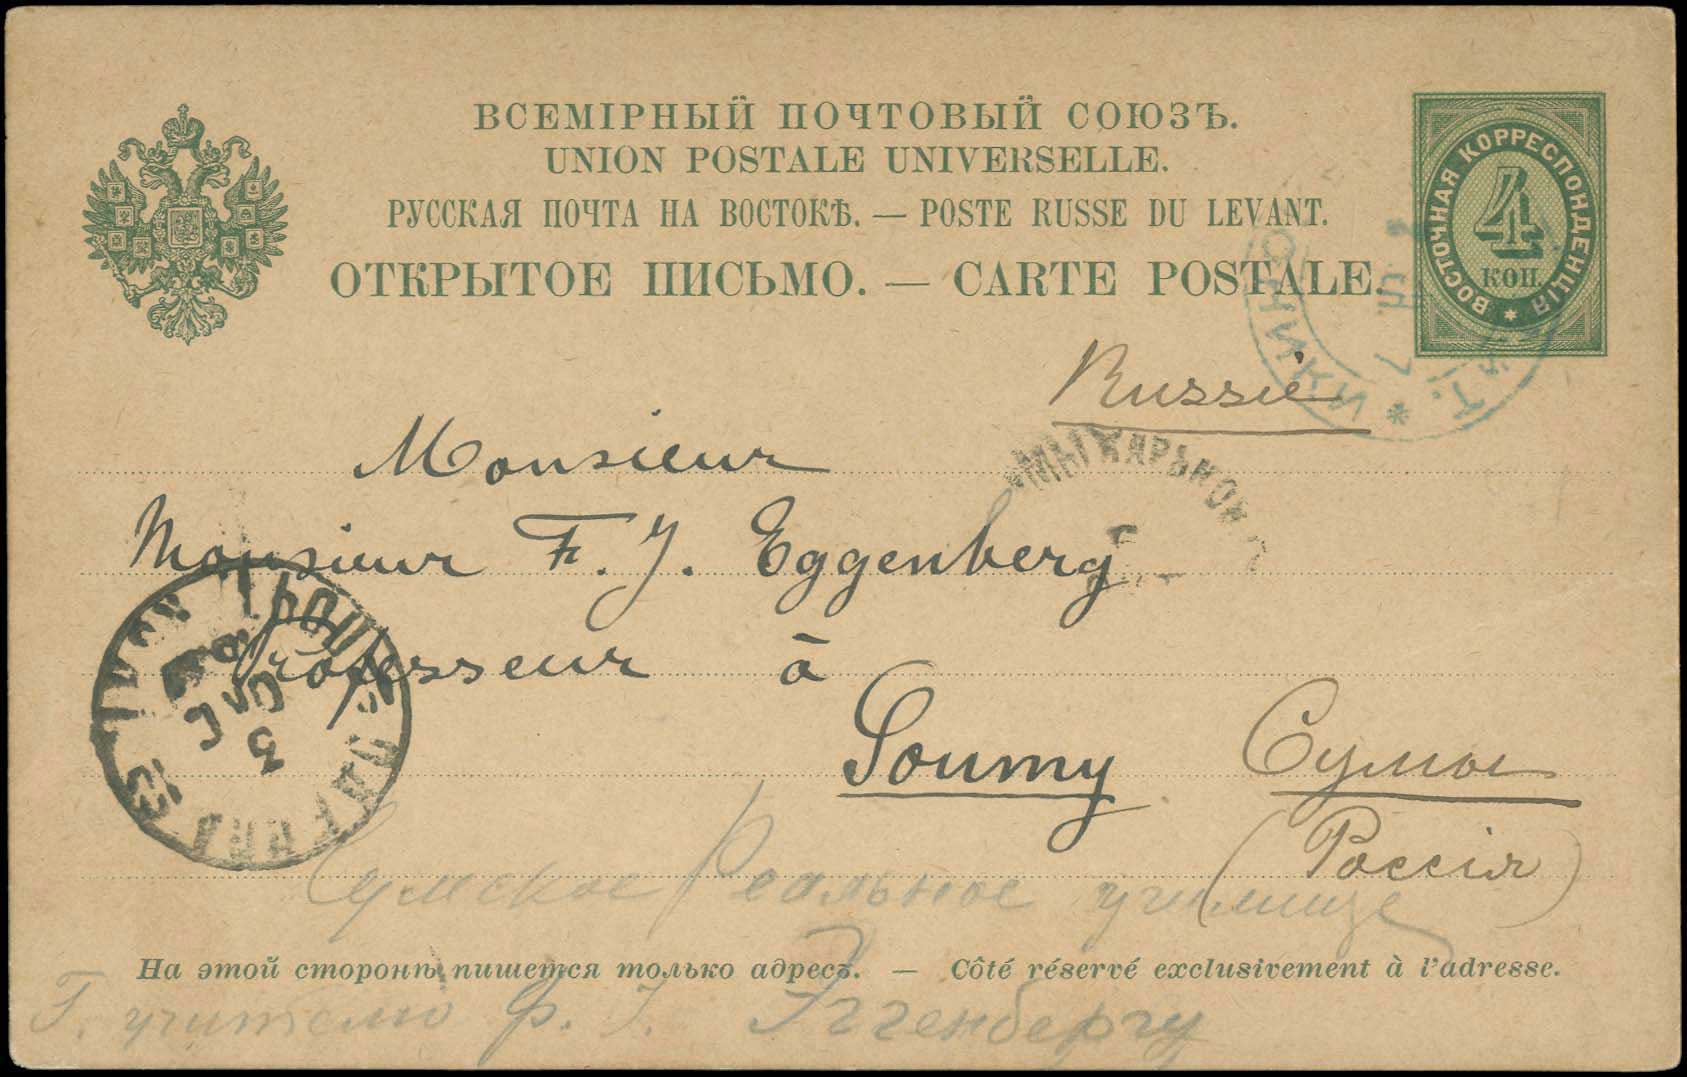 ВСЕМІРНЫЙ ПОЧТОВЫЙ СОЮЗЪ.
UNION POSTALE UNIVERSELLE.
РУССКАЯ ПОЧТА НА ВОСТОКѢ. — POSTE RUSSE DU LEVANT.
ОТКРЫТОЕ ПИСЬМО. — CARTE POSTALE.
ВОСТОЧНАЯ КОРРЕСПОНДЕНЦІЯ
4
КОП.
Russie
Monsieur
Monsieur F. J. Eggenberg
Professeur à
Soumy Сумы
(Россія)
Сумское Реальное училище
На этой сторонѣ пишется только адресъ. — Côté réservé exclusivement à l'adresse.
Г. учителю Ф. І. Эггенбергу